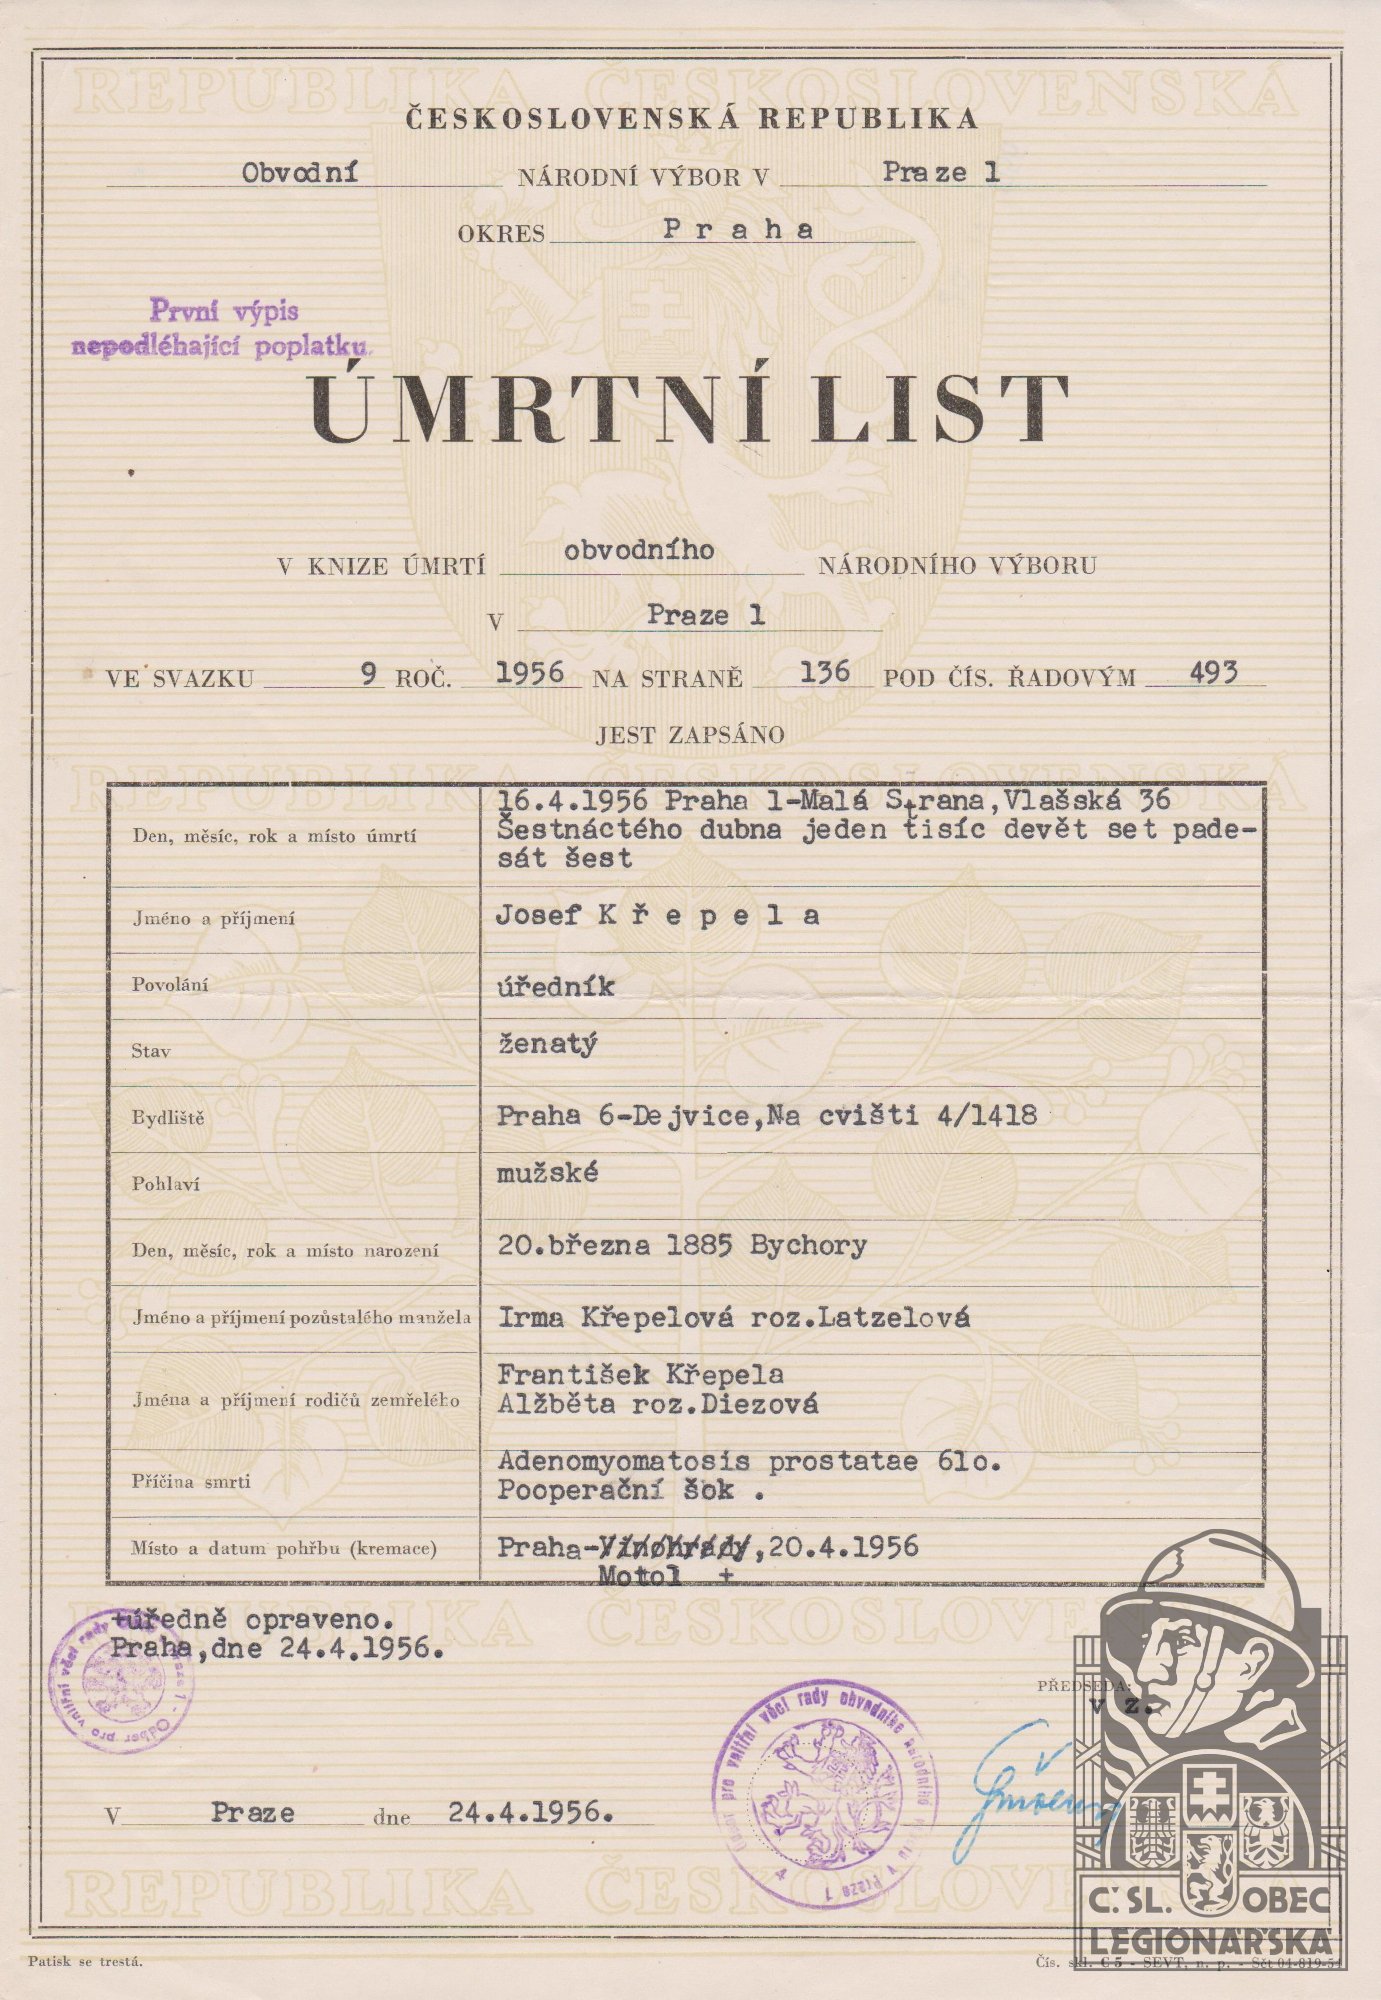 REPUBLIKA ČESKOSLOVENSKÁ
ČESKOSLOVENSKÁ REPUBLIKA
Obvodní NÁRODNÍ VÝBOR V Praze 1
OKRES Praha
První výpis
nepodléhající poplatku.
ÚMRTNÍ LIST
V KNIZE ÚMRTÍ obvodního NÁRODNÍHO VÝBORU
V Praze 1
VE SVAZKU 9 ROČ. 1956 NA STRANĚ 136 POD ČÍS. ŘADOVÝM 493
JEST ZAPSÁNO
REPUBLIKA ČESKOSLOVENSKÁ
Den, měsíc, rok a místo úmrtí
16.4.1956 Praha 1-Malá Strana,Vlašská 36
Šestnáctého dubna jeden tisíc devět set pade-
sát šest
Jméno a příjmení Josef Křepela
Povolání úředník
Stav ženatý
Bydliště Praha 6-Dejvice,Na cvišti 4/1418
Pohlaví mužské
Den, měsíc, rok a místo narození 20.března 1885 Bychory
Jméno a příjmení pozůstalého manžela Irma Křepelová roz.Latzelová
Jména a příjmení rodičů zemřelého
František Křepela
Alžběta roz.Diezová
Příčina smrti
Adenomyomatosis prostatae 61o.
Pooperační šok .
Místo a datum pohřbu (kremace) Praha-Vinohrady,20.4.1956
Motol +
REPUBLIKA ČESKOSLOVENSKÁ
+úředně opraveno.
Praha,dne 24.4.1956.
PŘEDSEDA:
v z.
V Praze dne 24.4.1956.
pro vnitřní věci rady obvodního národního výboru v Praze 1
4
REPUBLIKA ČESKOSLOVENSKÁ
Č.SL. OBEC
LEGIONÁŘSKÁ
Patisk se trestá.
Čís. skl. C 5 - SEVT, n. p. - Sčt 04-819-54